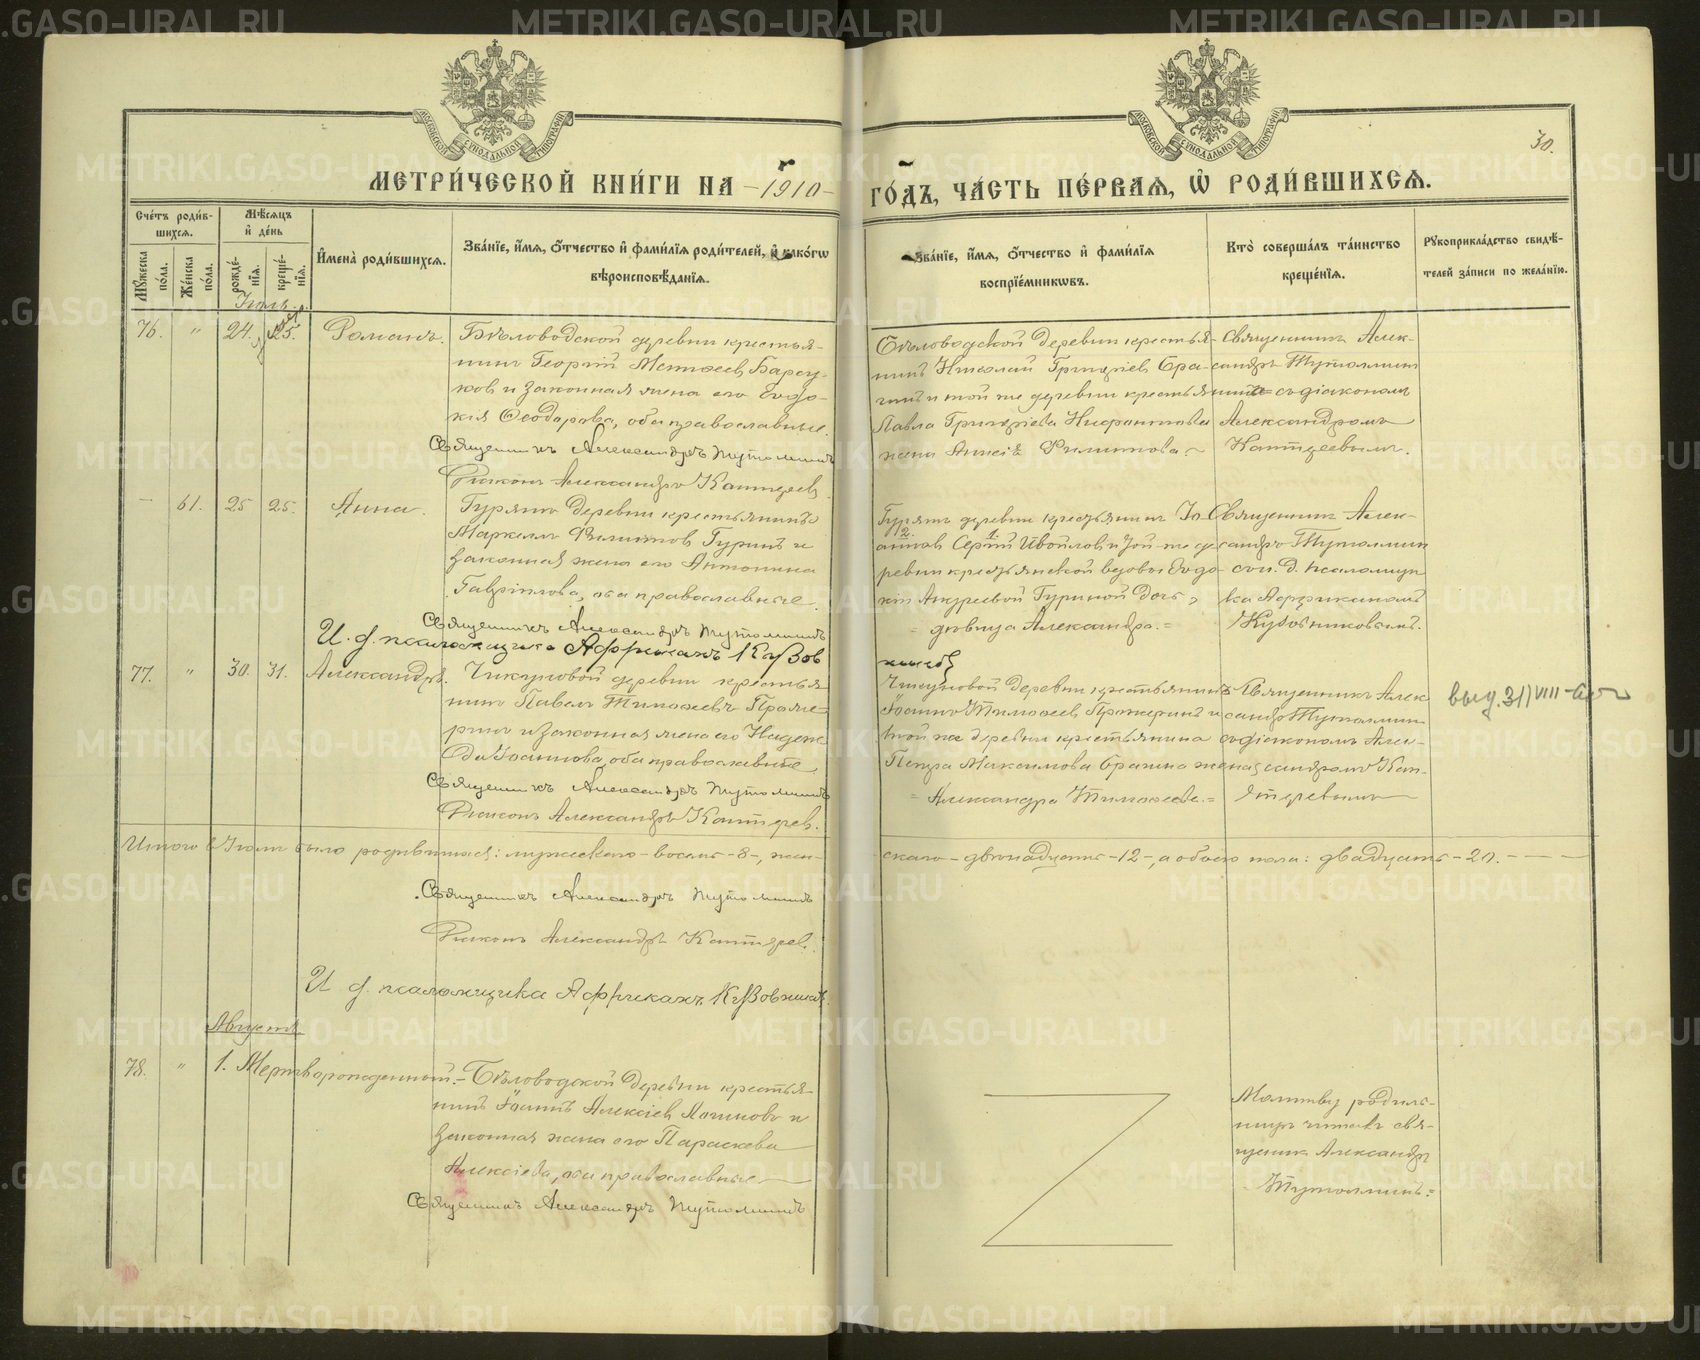 МЕТРИ́ЧЕСКОЙ КНИ́ГИ НА -1910-
ГО́ДЪ, ЧА́СТЬ ПЕ́РВАЯ, Ѡ РОДИ́ВШИХСЯ.
30.
Сче́тъ роди́в-
шихся.
Мѣ́сяцъ
и́ де́нь
И҆мена̀ роди́вшихся.
Зва́нїе, и҆́мя, о҆́тчество и҆ фами́лїя роди́телей, и҆ како́гѡ
вѣроисповѣ́данїя.
Мꙋ́жеска
по́ла.
Же́нска
по́ла.
рожде́-
нїя.
креще́-
нїя.
Іюль.
Зва́нїе, и҆́мя, о҆́тчество и҆ фами́лїя
воспрїе́мникѡвъ.
Кто̀ соверша́лъ та́инство
креще́нїя.
Рꙋкоприкла́дство свидѣ́-
телей за́писи по жела́нїю.
76. " 24. 25. Романъ.
Бѣловодской деревни крестья-
нинъ Георгій Матѳеев Барсу-
ков и законная жена его Евдо-
кія Ѳеодорова, оба православные.
Священникъ Александръ Тутолминъ
Діаконъ Александръ Каптерев.
Бѣловодской деревни крестья-
нинъ Николай Григоріев Бра-
гинъ и той же деревни крестьянина
Павла Григоріева
жена Филиппова
Священникъ Алек-
сандръ Тутолмин
съ діакономъ
Александромъ
Каптеревымъ.
- 61. 25 25. Анна.
Гурятъ деревни крестьянинъ
Маркеллъ Филиппов Гуринъ и
законная жена его Антонина
Гавріилова, оба православные.
Священникъ Александръ Тутолминъ
И. д. псаломщика Африканъ Кузов
ников
Гурятъ деревни крестьянинъ
2. 1.
Сергій и той-же де-
ревни крестьянской вдовы Евдо-
кіи Андреевой Гуриной дочь,
= дѣвица Александра. =
Священник Алек-
сандръ Тутолмин
с и. д. псаломщи
ка Африканомъ
Кузовниковымъ.
77. " 30. 31. Александръ.
Чикуновой деревни крестья
нинъ Павелъ Тимоѳеевъ Проже-
ринъ и законная жена его Надеж
да Іоаннова, оба православные
Священникъ Александръ Тутолминъ
Діаконъ Александръ Каптерев.
Чикуновой деревни крестьянинъ
Іоаннъ Тимоѳеев Прожеринъ и
той же деревни крестьянина
Петра Максимова Брагина жена
= Александра Тимоѳеева. =
Священникъ Алек
сандръ Тутолмин
съ діакономъ Алек-
сандромъ Кап-
теревымъ
выд. 31/VIII
Итого в Іюлѣ было родившихся: мужеского - восемь - 8 -, жен-
скаго - двѣнадцать - 12 -, а обоего пола: двадцать - 20. - - -
Священникъ Александръ Тутолминъ
Діаконъ Александръ Каптерев.
И д. псаломщика Африканъ Кузовников.
Августъ
78. " 1. Мертворожденный. - Бѣловодской деревни крестья-
нинъ Іоаннъ Алексіев Логинов и
законная жена его Параскева
Алексіева, оба православные
Священникъ Александръ Тутолминъ
Молитву родиль-
ницѣ читалъ свя-
щенник Александръ
Тутолминъ. =
METRIKI.GASO-URAL.RU